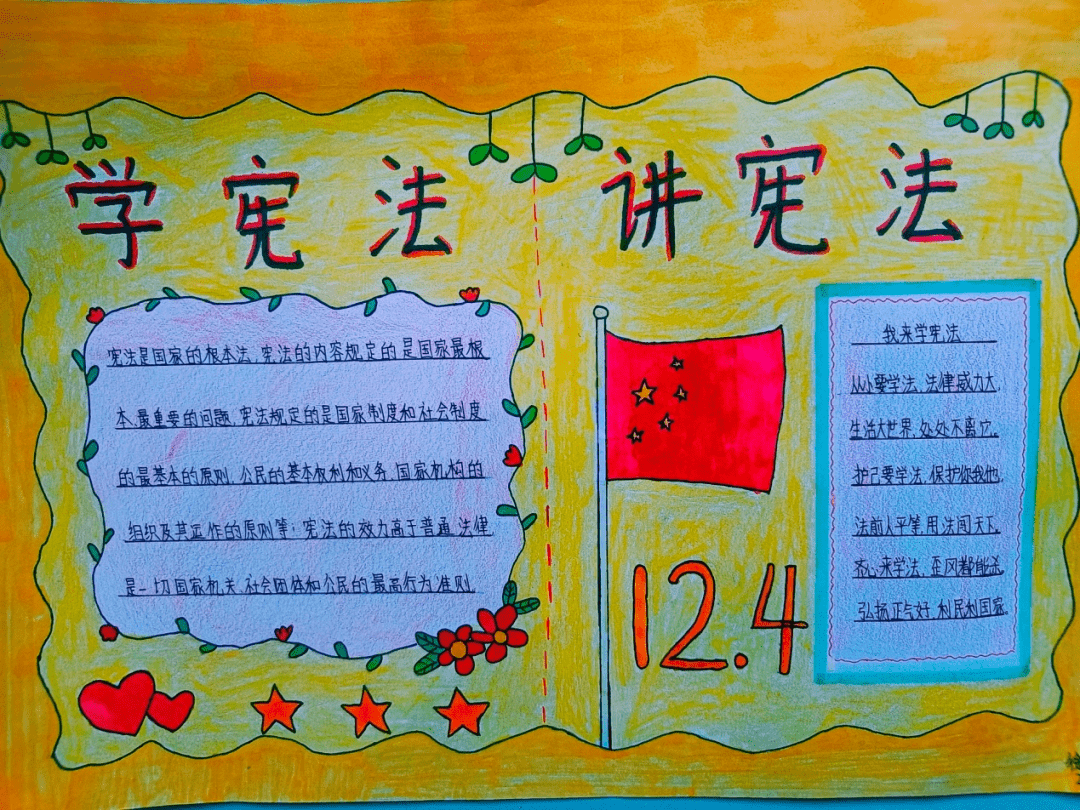 学宪法 讲宪法
宪法是国家的根本法,宪法的内容规定的是国家最根
本、最重要的问题,宪法规定的是国家制度和社会制度
的最基本的原则,公民的基本权利和义务,国家机构的
组织及其工作的原则等;宪法的效力高于普通法律
是一切国家机关、社会团体和公民的最高行为准则
12.4
我来学宪法
从小要学法,法律威力大,
生活大世界,处处不离它。
护己要学法,保护你我他,
法前人平等,用法闯天下。
齐心来学法,歪风都能杀,
弘扬正气好,利民利国家。